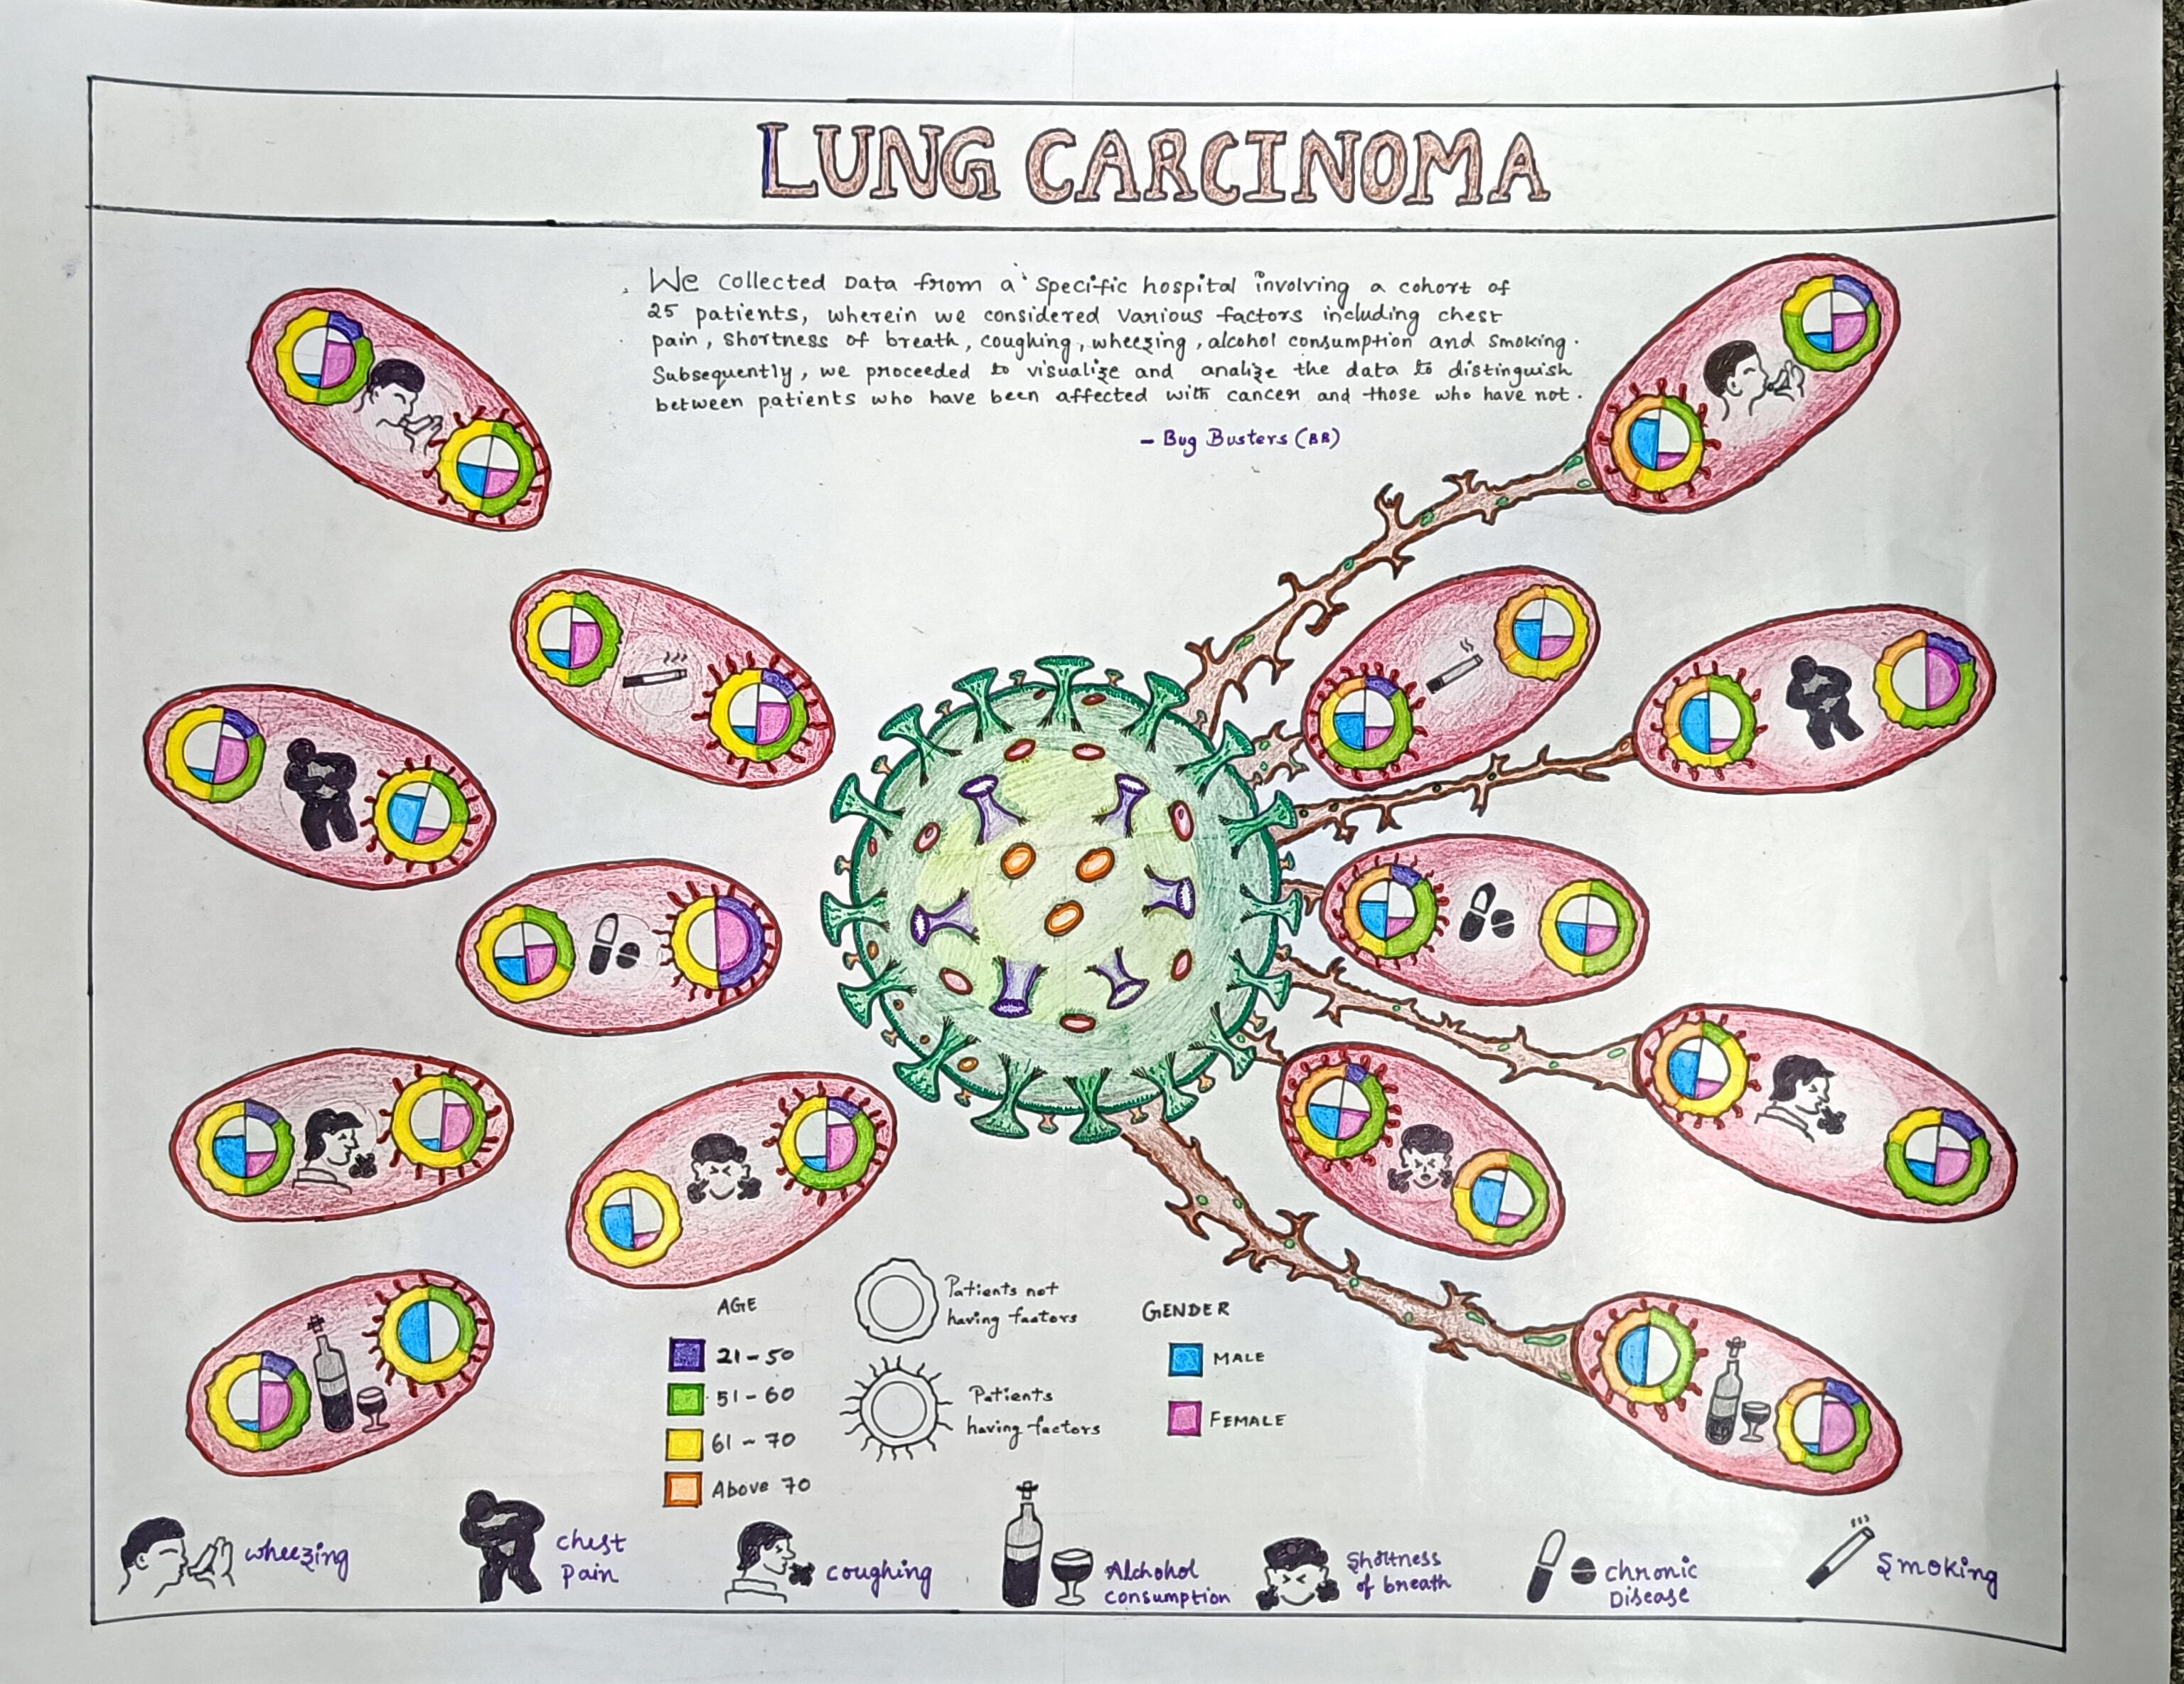 LUNG CARCINOMA
We collected Data from a specific hospital involving a cohort of
25 patients, wherein we considered various factors including chest
pain, shortness of breath, coughing, wheezing, alcohol consumption and smoking.
Subsequently, we proceeded to visualize and analize the data to distinguish
between patients who have been affected with cancer and those who have not.
- Bug Busters (BB)
AGE
21-50
51-60
61-70
Above 70
Patients not
having factors
Patients
having factors
GENDER
MALE
FEMALE
wheezing
chest
pain
coughing
Alchohol
consumption
Shortness
of breath
chronic
Disease
Smoking